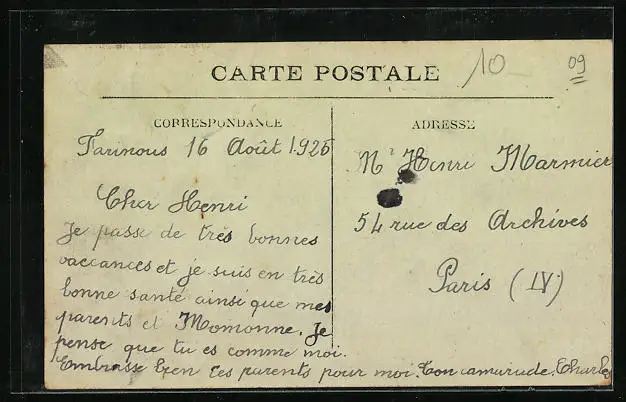 10
09
CARTE POSTALE
CORRESPONDANCE
ADRESSE
Tarinous 16 Août 1925
Cher Henri
Je passe de très bonnes
vaccances et je suis en très
bonne santé ainsi que mes
parents et Momonne. Je
pense que tu es comme moi.
Embrasse bien tes parents pour moi. Ton camarade. Charles
Mr Henri Marmier
54 rue des Archives
Paris (IV)